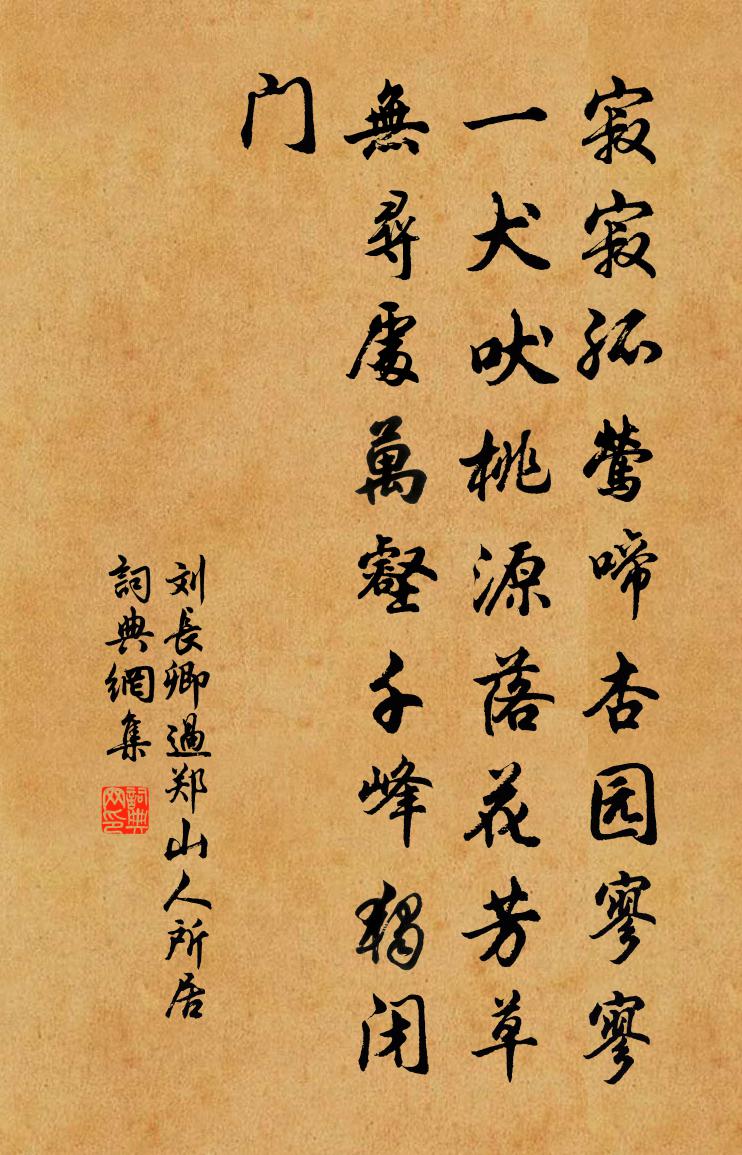 寂寂孤鶯啼杏园寥寥
一犬吠桃源落花芳草
無尋處萬壑千峰獨闭
门
刘長卿過郑山人所居
詞典網集
詞典網印